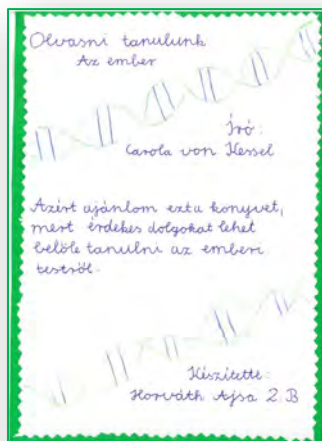 Olvasni tanulunk
Az ember
Író:
Carola von Kessel
Azért ajánlom ezt a könyvet,
mert érdekes dolgokat lehet
belőle tanulni az emberi
testről.
Készítette:
Horváth Ajsa 2.B